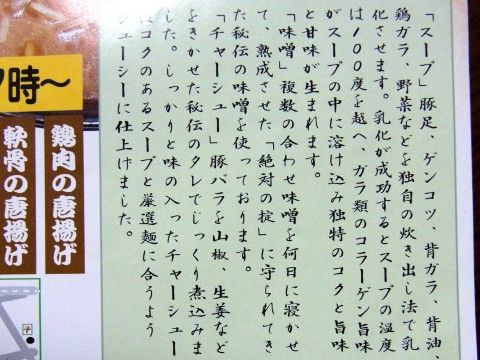 「スープ」豚足、ゲンコツ 背ガラ 背油、
鶏ガラ、野菜などを独自の炊き出し法で乳
化させます。乳化が成功するとスープの温度
は100度を越へ、ガラ類のコラーゲン旨味
がスープの中に溶け込み独特のコクと旨味
と甘味が生まれます。
「味噌」複数の合わせ味噌を何日に寝かせ
て、熟成させた「絶対の掟」に守られてき
た秘伝の味噌を使っております。
「チャーシュー」豚バラを山椒、生姜など
をきかせた秘伝のタレでじっくり煮込みま
した。しっかりと味の入ったチャーシュー
はコクのあるスープと厳選麺に合うよう
ジューシーに仕上げました。
7時〜
鶏肉の唐揚げ
軟骨の唐揚げ